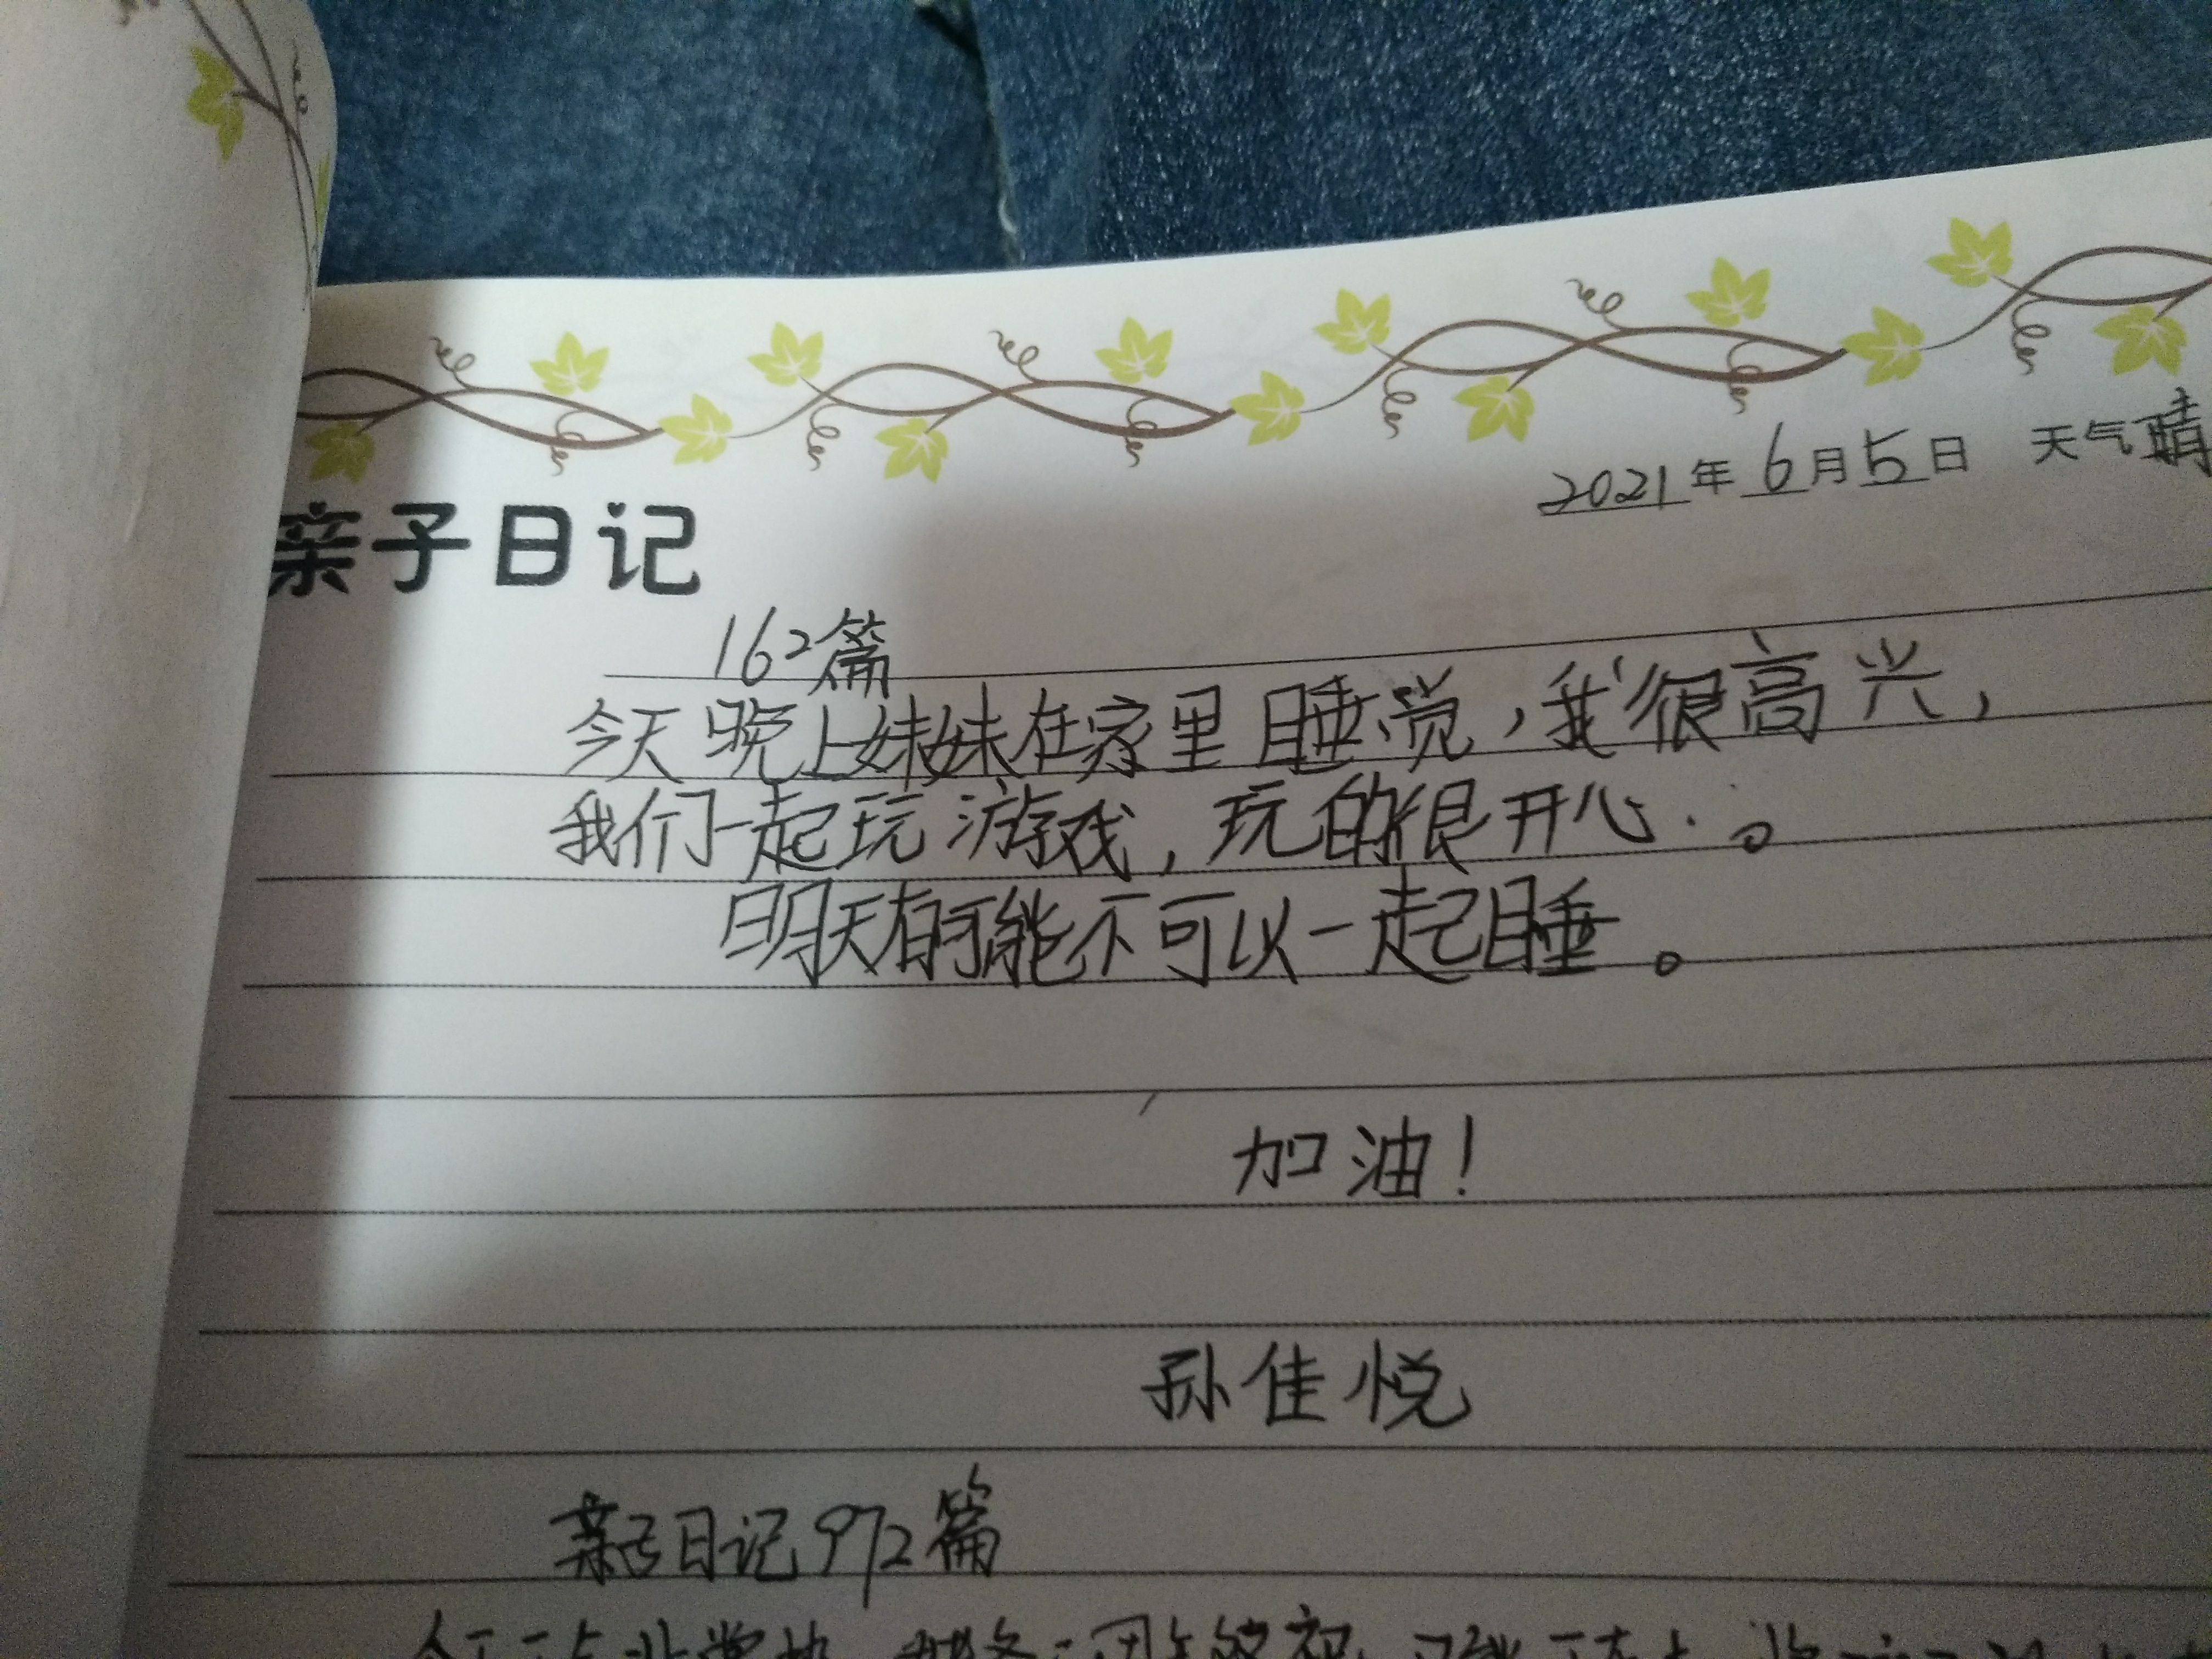 2021年6月5日 天气晴
亲子日记
162篇
今天晚上妹妹在家里睡觉，我很高兴，
我们一起玩游戏，玩的很开心。
明天有可能不可以一起睡。
加油！
孙佳悦
亲子日记972篇